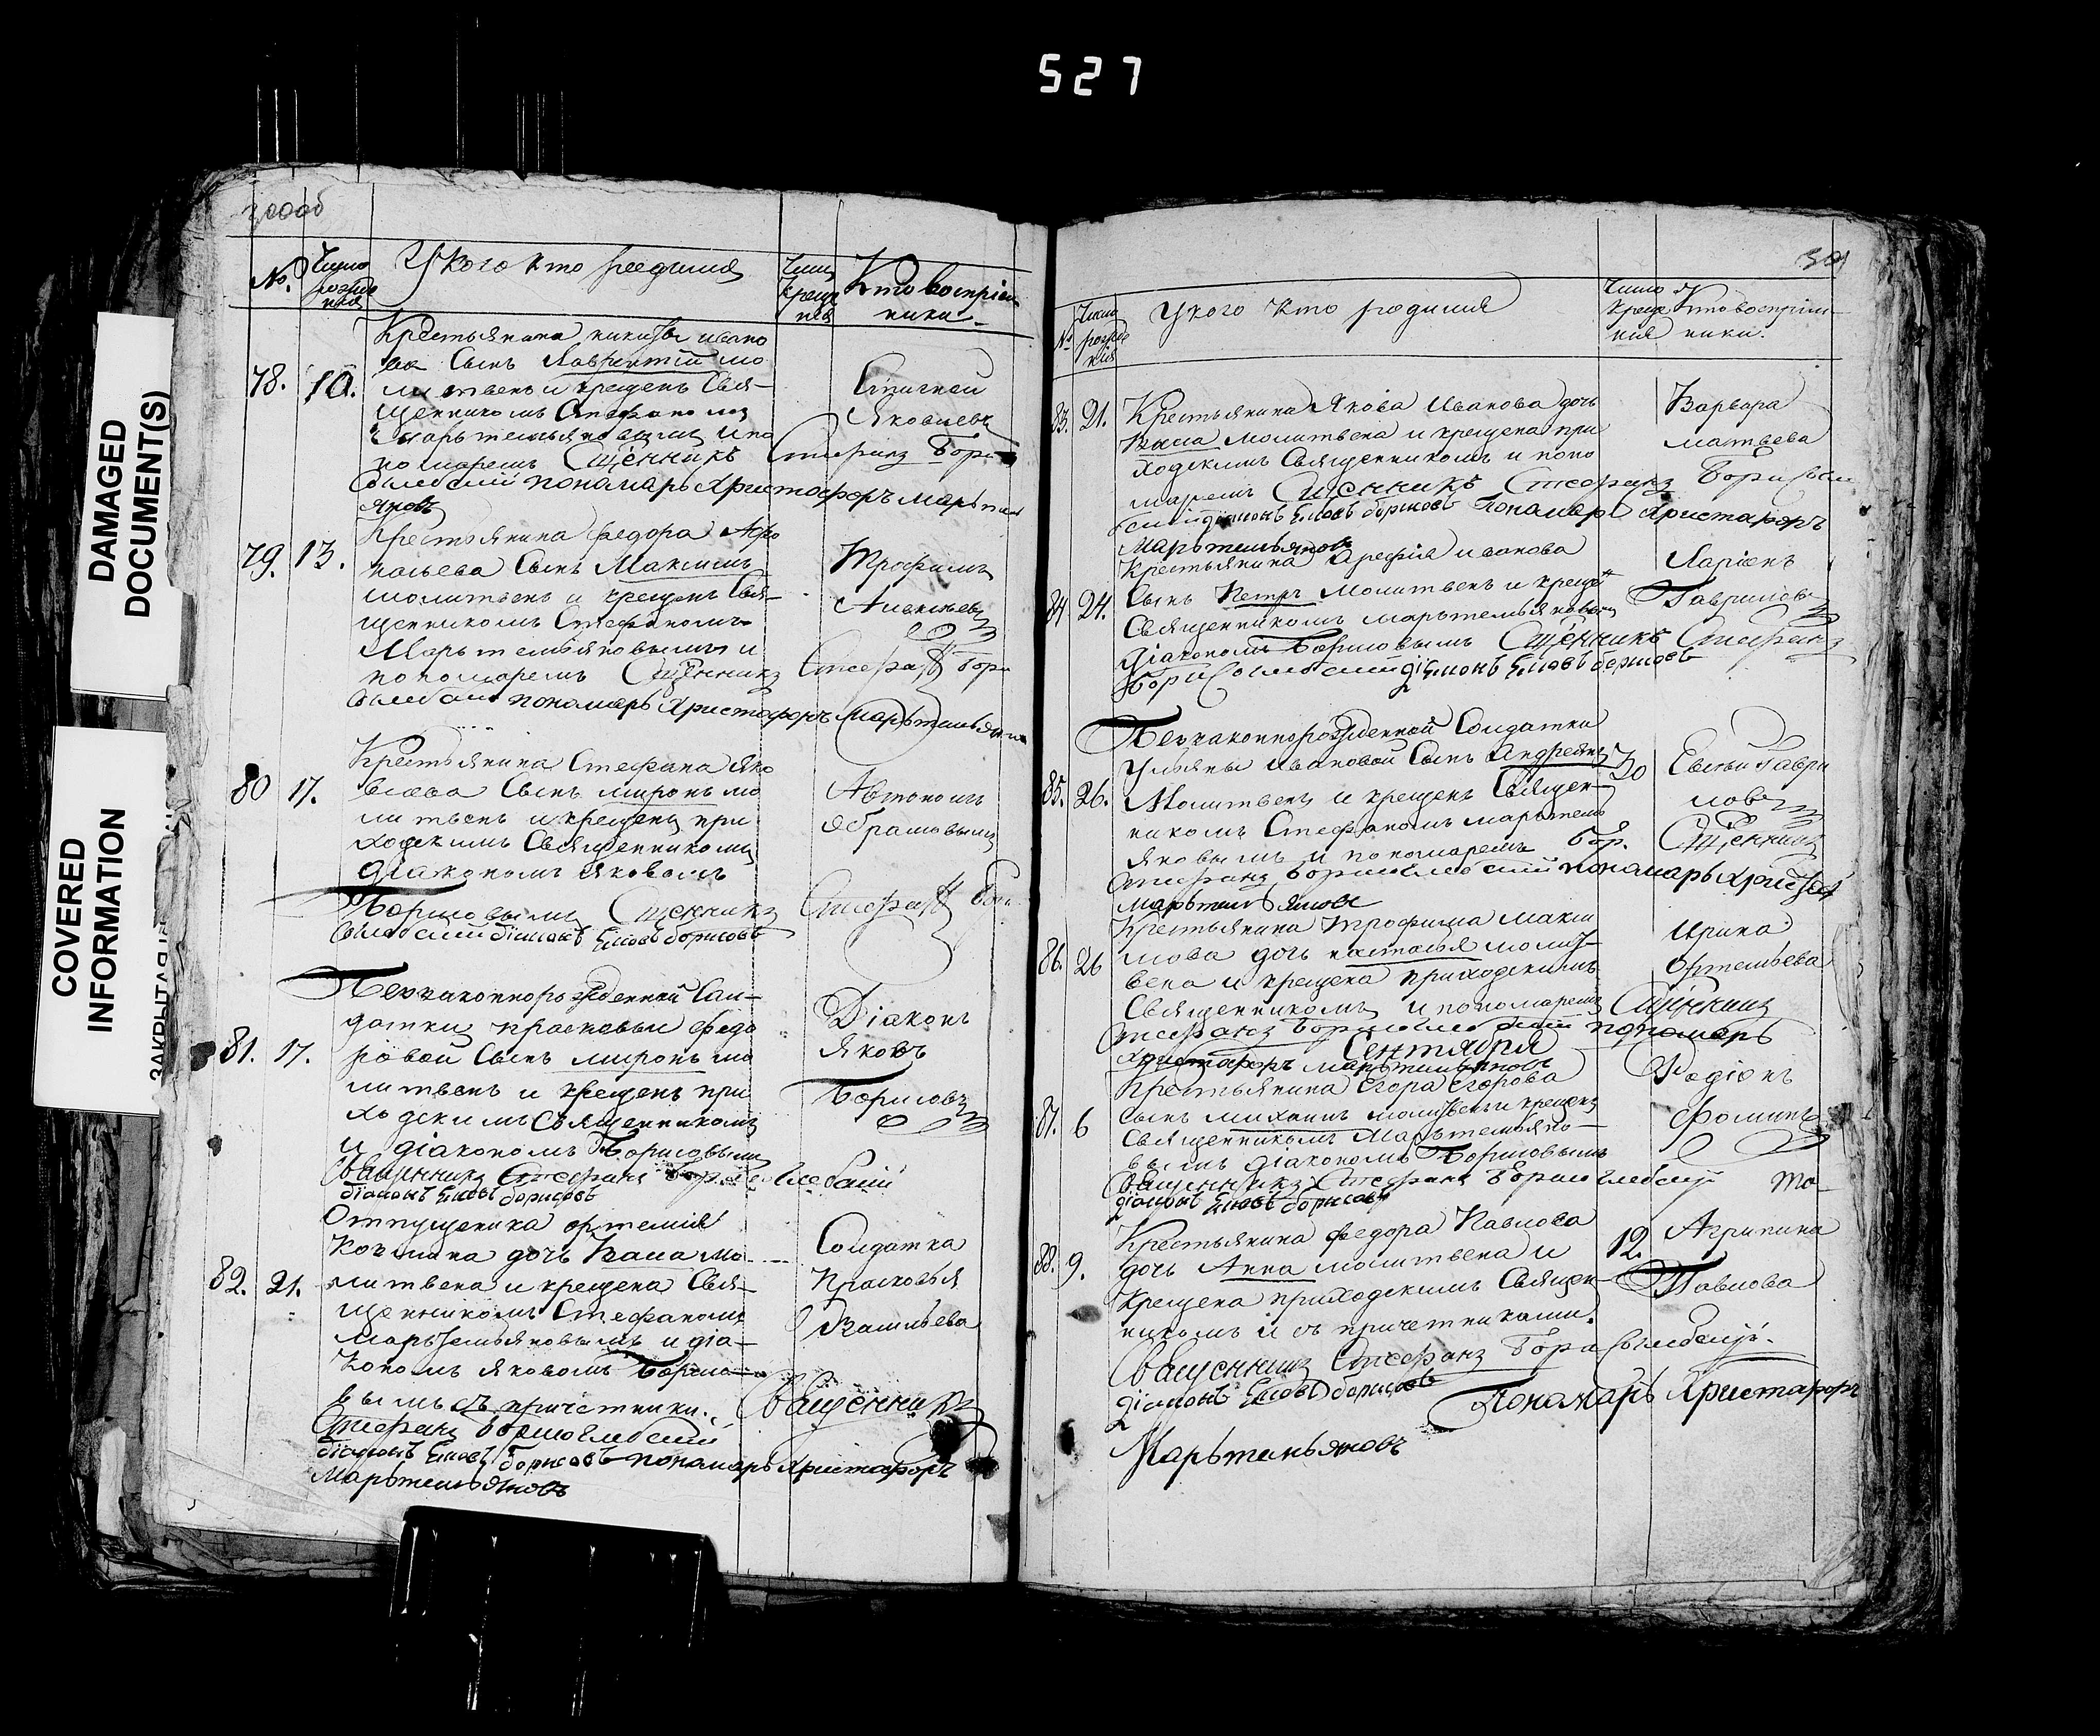 527
DAMAGED
DOCUMENT(S)
COVERED
INFORMATION
300об
№.
Число рожде нія
У кого кто родился
Число креще нія
Кто воспріем
ники.
78. 10.
Крестьянина никиты ивано
ва Сынъ Лаврентій мо
литвенъ и крещенъ Свя-
щенникомъ Стефаномъ
Мартемьяновымъ и по
номаремъ Сщенникъ Стефанъ Бори
соглебский пономарь Христофоръ Мартем
яновъ
Яковлевъ
79. 13.
Крестьянина федора Афо
насьева Сынъ Максимъ
молитвенъ и крещенъ Свя-
щенникомъ Стефаномъ
Мартемьяновымъ и
пономаремъ Сщенникъ Стефанъ Бори
соглебский пономарь Христофоръ Мартемьянов
Трофимъ
Алексеевъ
80 17.
Крестьянина Стефана Яко
влева Сынъ миронъ мо
литвенъ и крещенъ при
ходскимъ Священникомъ
діакономъ Яковомъ
Борисовымъ Сщенникъ Стефанъ Бори
соглебский діаконъ Яковъ борисовъ
Автономъ
Абрамовымъ
81. 17.
Незаконнорожденный Сол-
датки прасковьи федо
ровой Сынъ миронъ мо
литвенъ и крещенъ при
ходскимъ Священникомъ
и діакономъ Борисовымъ
Священникъ Стефанъ Борисоглебский
діаконъ Яковъ борисовъ
Діаконъ
Яковъ
Борисовъ
82. 21.
Отпущеника Артемія
Козмина дочь Васа мо
литвена и крещена Свя-
щенникомъ Стефаномъ
Мартемьяновымъ и діа-
кономъ Яковомъ Борисо
вымъ съ причетники. Священникъ
Стефанъ Борисоглебский
діаконъ Яковъ борисовъ пономарь Христофоръ
Мартемьяновъ
Солдатка
Прасковья
Васильева
301
№
Число рожде нія
У кого кто родился
Число креще нія
Кто воспріем-
ники.
83. 21.
Крестьянина Якова Иванова дочь
Васа молитвена и крещена при
ходскимъ Священникомъ и поно
маремъ Сщенникъ Стефанъ Борисогле
бский діаконъ Яковъ борисовъ Пономарь Христофоръ
Мартемьяновъ
Варвара
матвеева
84. 24.
Крестьянина Арефія иванова
Сынъ Петръ молитвенъ и креще
Священникомъ мартемьяновым
діакономъ Борисовымъ Сщенникъ Стефанъ
Борисоглебский діаконъ Яковъ борисовъ
Ларіонъ
Гавриловъ
85. 26.
Незаконнорожденной Солдатки
Ульяны Ивановой Сынъ Андреянъ
Молитвенъ и крещенъ Священ-
никомъ Стефаномъ мартемь
яновымъ и пономаремъ Бор. Сщенникъ
Стефанъ Борисоглебский пономарь Христоф
мартемьяновъ
30
Евсевій Гаври
ловъ
86. 26
Крестьянина Трофима Макси
мова дочь настасья молит-
вена и крещена приходскимъ
Священникомъ и пономаремъ Сщенникъ
Стефанъ Борисоглебский пономарь
Христофоръ мартемьяновъ
Ирина
Артемьева
Сентября
87. 6
Крестьянина Егора Егорова
Сынъ михаилъ молитвенъ и крещенъ
Священникомъ Мартемьяно-
вымъ діакономъ Борисовымъ
Священникъ Стефанъ Борисоглебский
діаконъ Яковъ борисовъ
Родіонъ
фоминъ
88. 9.
Крестьянина федора Павлова
дочь Анна молитвена и
крещена приходскимъ Священ-
никомъ и съ причетниками.
Священникъ Стефанъ Борисоглебский.
діаконъ Яковъ борисовъ Пономарь Христофоръ
Мартемьяновъ
12.
Агрипина
Павлова